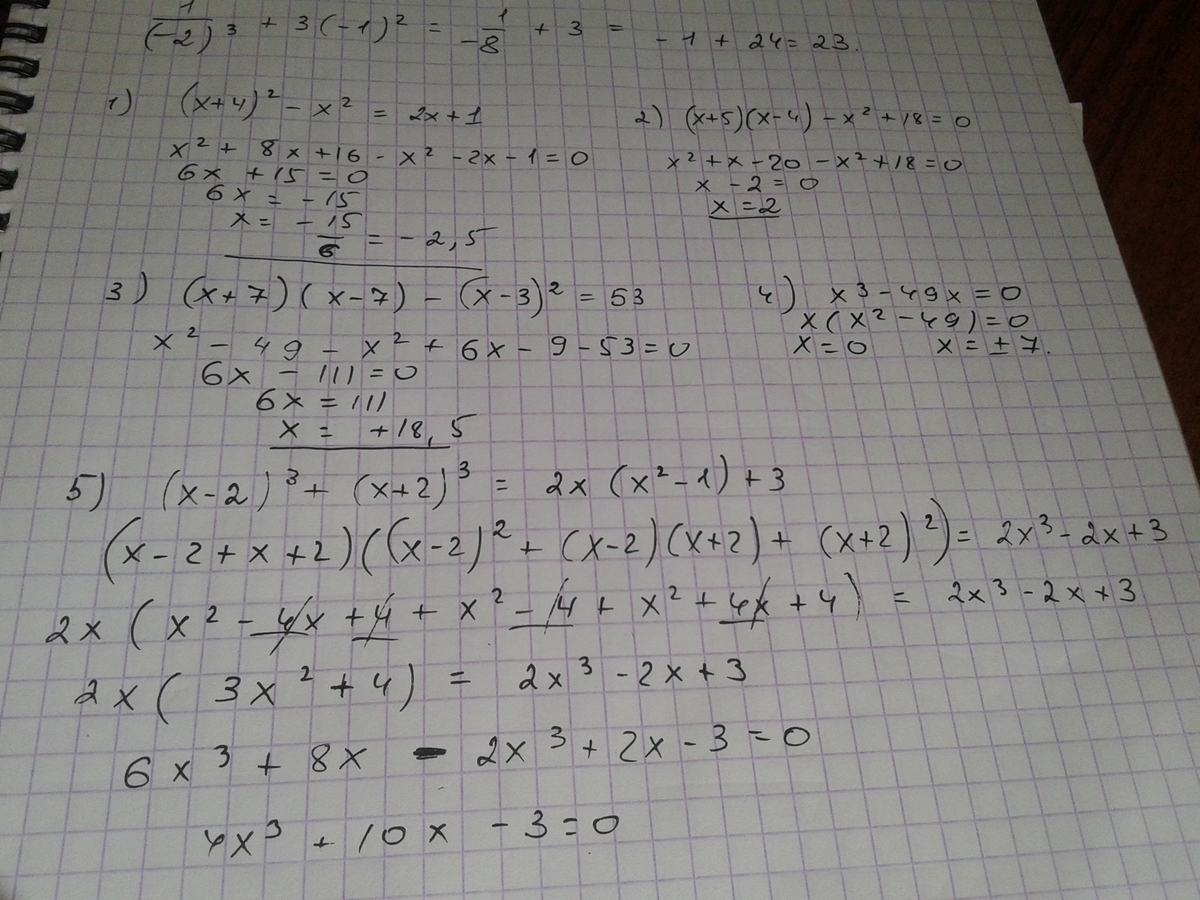 1/(-2)³ + 3(-1)² = 1/-8 + 3 = -1 + 24 = 23.
1) (x+4)² - x² = 2x+1
x² + 8x + 16 - x² - 2x - 1 = 0
6x + 15 = 0
6x = -15
x = -15/6 = -2,5
2) (x+5)(x-4) - x² + 18 = 0
x² + x - 20 - x² + 18 = 0
x - 2 = 0
x = 2
3) (x+7)(x-7) - (x-3)² = 53
x² - 49 - x² + 6x - 9 - 53 = 0
6x - 111 = 0
6x = 111
x = +18,5
4) x³ - 49x = 0
x(x² - 49) = 0
x = 0 x = ±7.
5) (x-2)³ + (x+2)³ = 2x(x²-1) + 3
(x-2+x+2)((x-2)² + (x-2)(x+2) + (x+2)²) = 2x³ - 2x + 3
2x(x² - 4x + 4 + x² - 4 + x² + 4x + 4) = 2x³ - 2x + 3
2x(3x² + 4) = 2x³ - 2x + 3
6x³ + 8x - 2x³ + 2x - 3 = 0
4x³ + 10x - 3 = 0